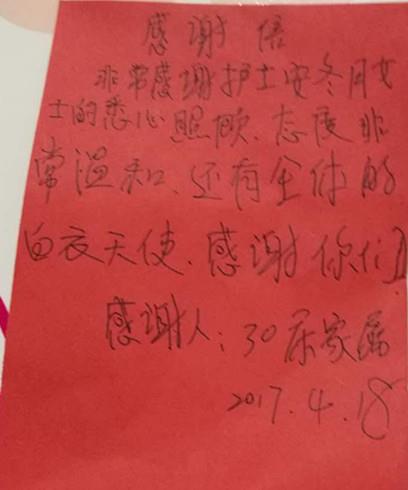 感谢信
非常感谢护士安冬月女
士的悉心照顾、态度非
常温和、还有全体的
白衣天使、感谢你们
感谢人：30床家属
2017.4.18